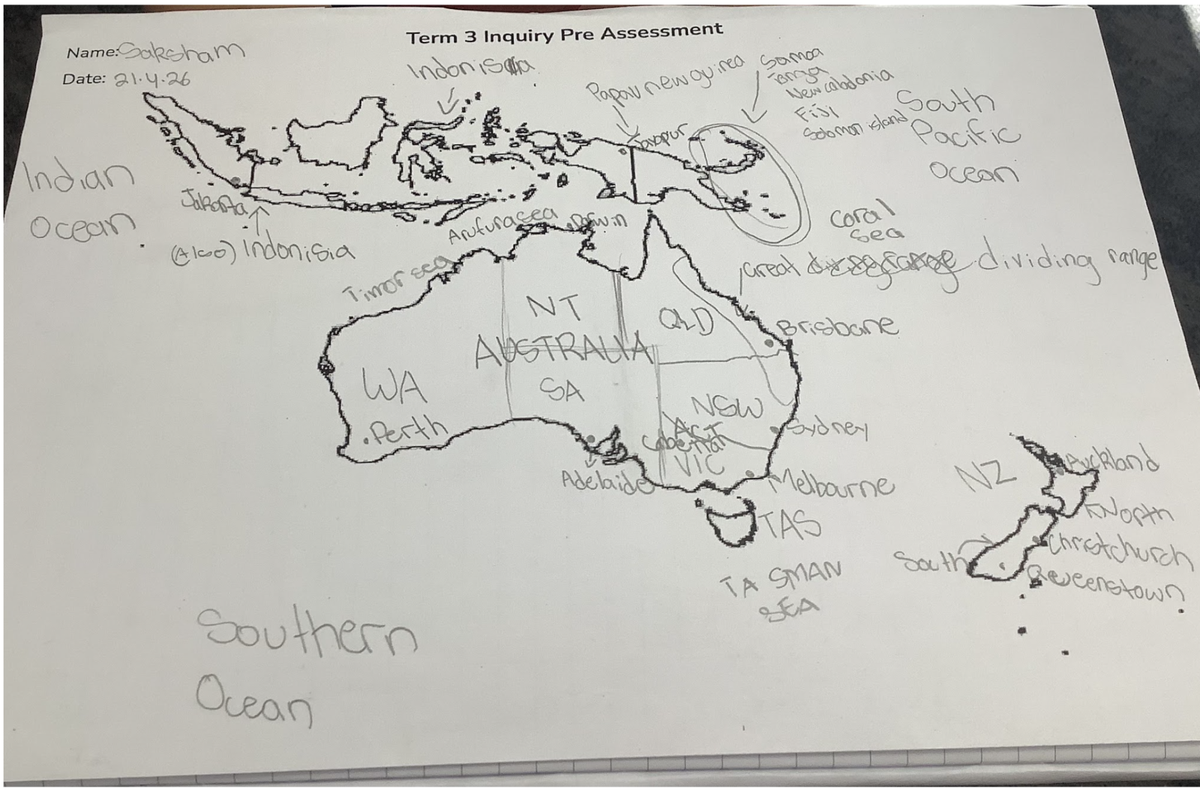 Term 3 Inquiry Pre Assessment
Name: Saksham
Date: 21.4.26
Indonisia
Papau new guinea
Samoa
Tonga
New caladonia
Fiji
Solomon island
South
Pacific
Ocean
Indian
Ocean
Jakarta
(Also) Indonisia
Arufura sea
Darwin
Timor sea
Coral
sea
Great
dividing range
NT
QLD
Brisbane
AUSTRALIA
WA
SA
NSW
Perth
ACT
Sydney
VIC
Adelaide
Melbourne
TAS
TASMAN
SEA
NZ
Auckland
North
Christchurch
South
Queenstown
Southern
Ocean